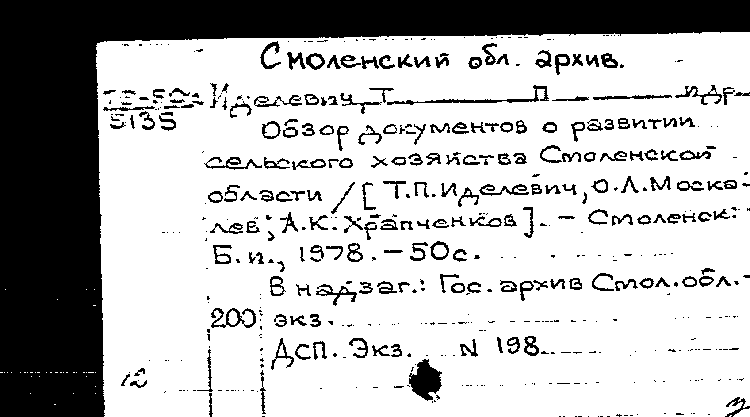 Смоленский обл. архив.
Иделевич, Т. П и др
5135
Обзор документов о развитии
сельского хозяйства Смоленской
области / [Т.П.Иделевич, О.Л.Моска-
лев; А.К.Храпченков]. – Смоленск:
Б.и., 1978. – 50с.
В надзаг.: Гос. архив Смол.обл. –
200 экз.
ДСП. Экз. N 198.
12